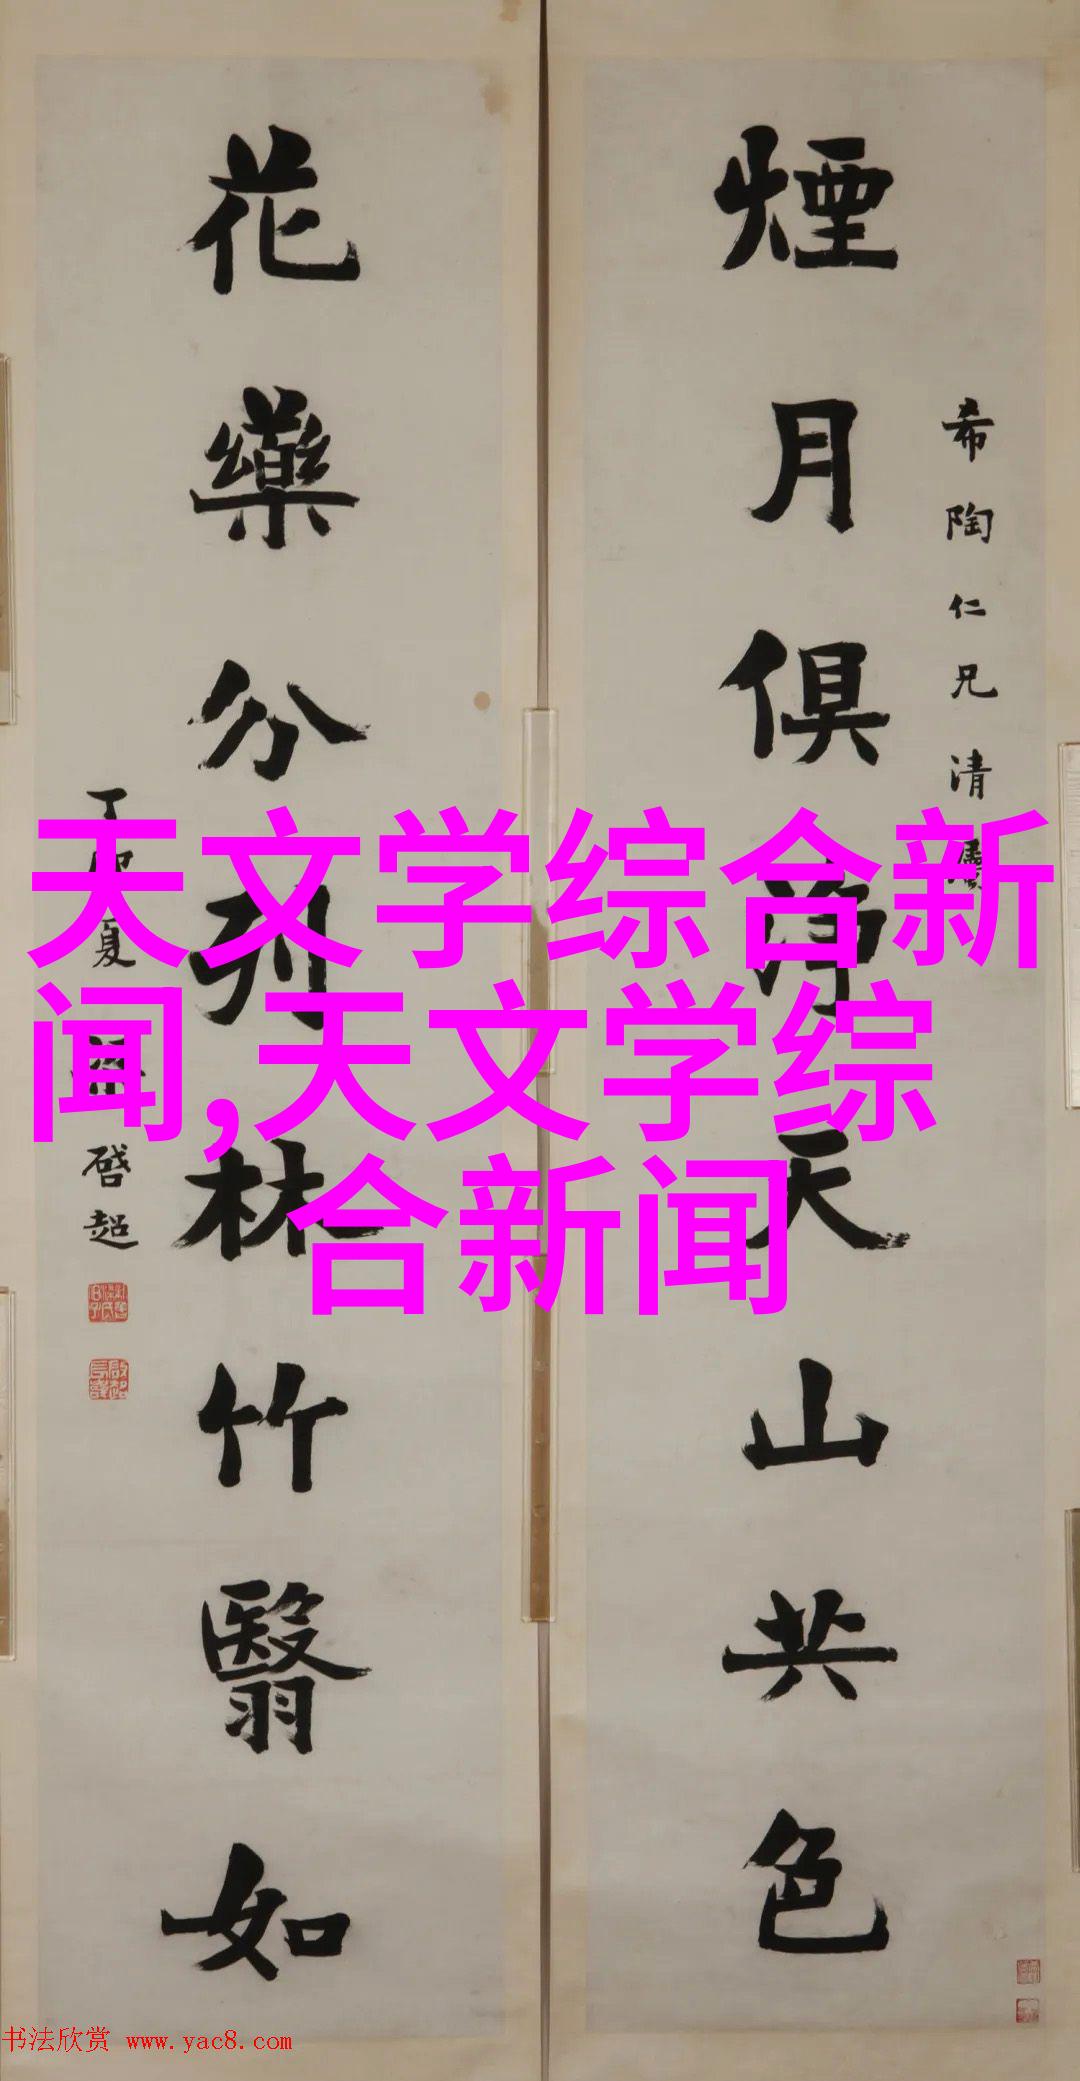 煙月俱淨天山共色
希陶仁兄清屬
花藥分列林竹翳如
丁卯夏 梁啓超
天文学综合新
闻,天文学综
合新闻
书法欣赏 www.yac8.com